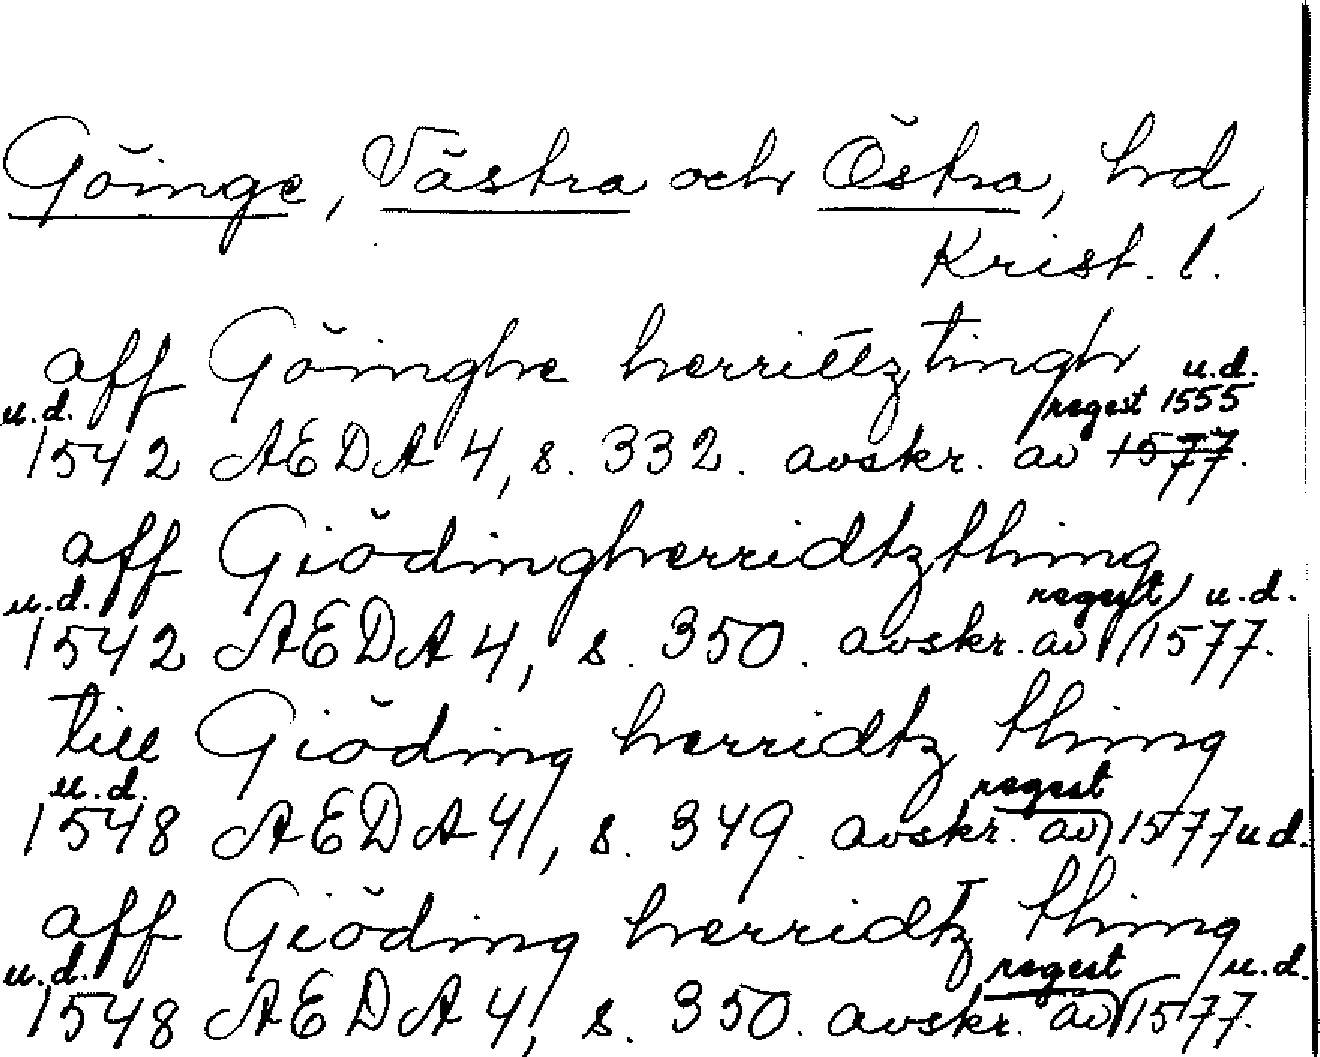 Göinge, Västra och Östra, hd,
Krist. l.
aff Göinghe herriitz tingh u.d.
u.d. regest 1555
1542 AEDA 4, s. 332. avskr. av 1577.
aff Giödingherridtzthing
u.d. regest u.d.
1542 AEDA 4, s. 350. avskr. av 1577.
till Giöding herridtz thing
u.d. regest
1548 AEDA 4, s. 349. avskr. av 1577 u.d.
aff Giöding herridtz thing
u.d. regest u.d.
1548 AEDA 4, s. 350. avskr. av 1577.